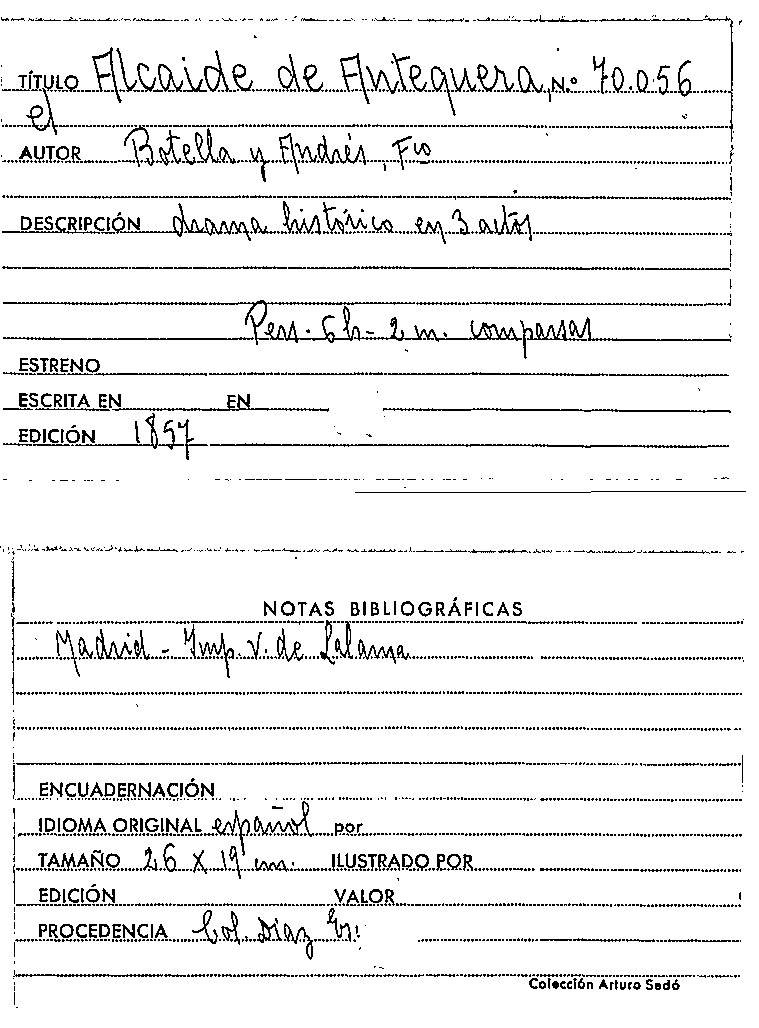 TÍTULO Alcaide de Antequera, N.º 70.056
el
AUTOR Botella y Andrés, Fco
DESCRIPCIÓN drama histórico en 3 actos
Pers. 6 h - 2 m. comparsas
ESTRENO
ESCRITA EN EN
EDICIÓN 1857
NOTAS BIBLIOGRÁFICAS
Madrid - Imp. V. de Lalama
ENCUADERNACIÓN
IDIOMA ORIGINAL español por
TAMAÑO 26 X 19 cm. ILUSTRADO POR
EDICIÓN VALOR
PROCEDENCIA Col. Díaz
Colección Arturo Sedó